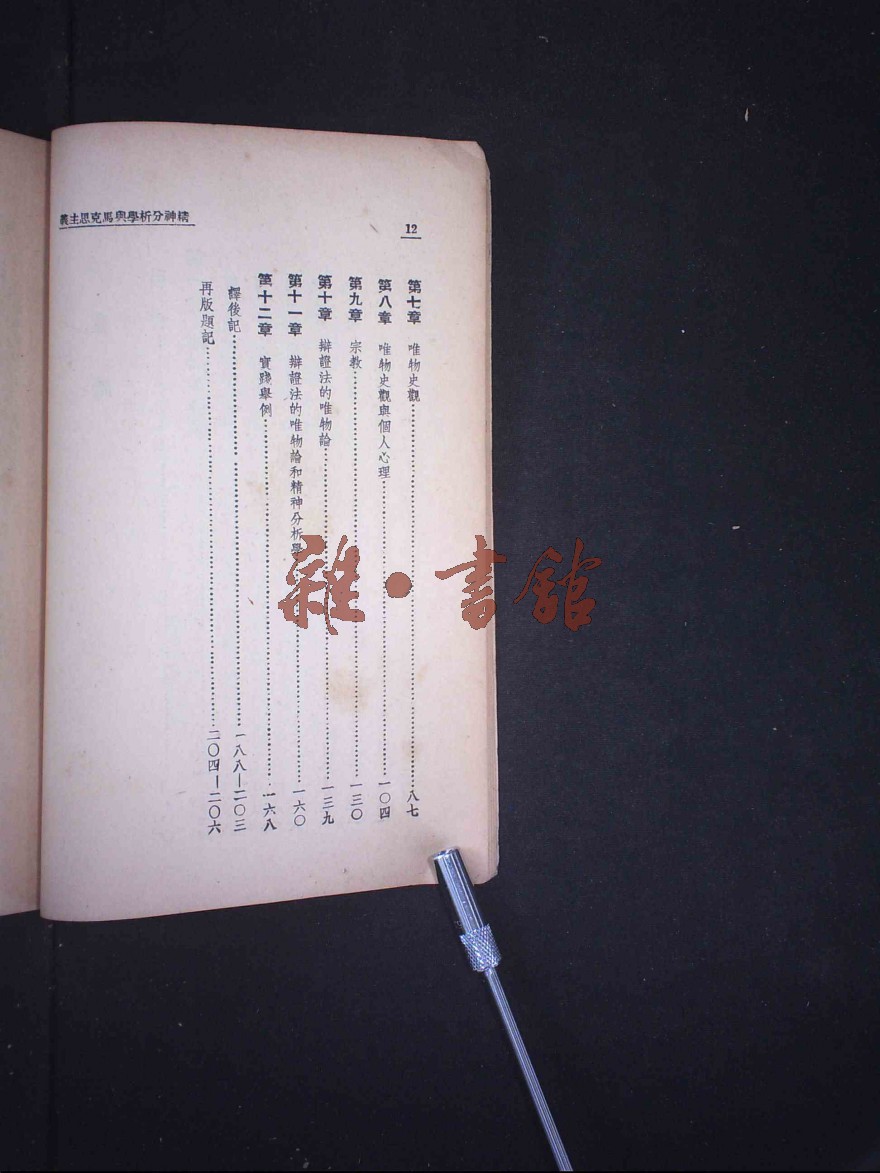 精神分析學與馬克思主義
12
第七章 唯物史觀……八七
第八章 唯物史觀與個人心理……一〇四
第九章 宗教……一三〇
第十章 辯證法的唯物論……一三九
第十一章 辯證法的唯物論和精神分析學……一六〇
第十二章 實踐舉例……一六八
譯後記……一八八—二〇三
再版題記……二〇四—二〇六
雜·書館